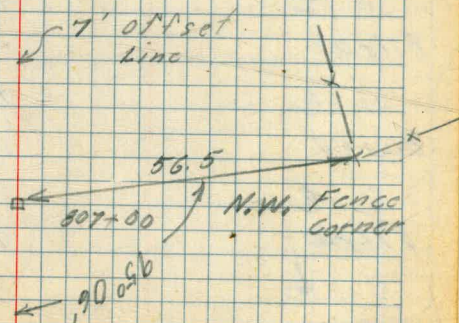 7' offset
Line
56.5
807+00
N.W. Fence
Corner
95° 06'